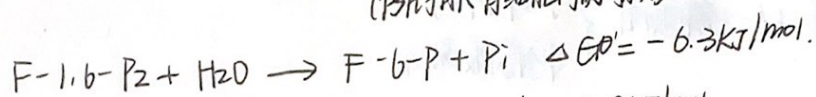 F-1,6-P2 + H2O → F-6-P + Pi △G°'= -6.3KJ/mol.